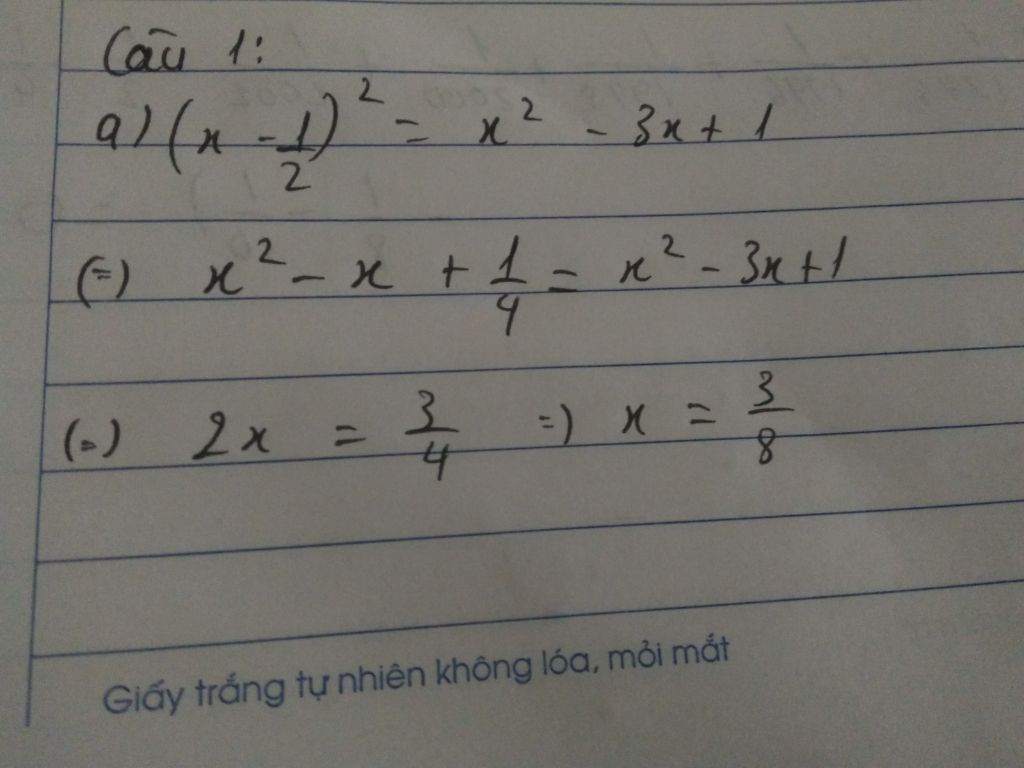 Câu 1:
a) (x - 1/2)² = x² - 3x + 1
(=) x² - x + 1/4 = x² - 3x + 1
(=) 2x = 3/4 =) x = 3/8
Giấy trắng tự nhiên không lóa, mỏi mắt